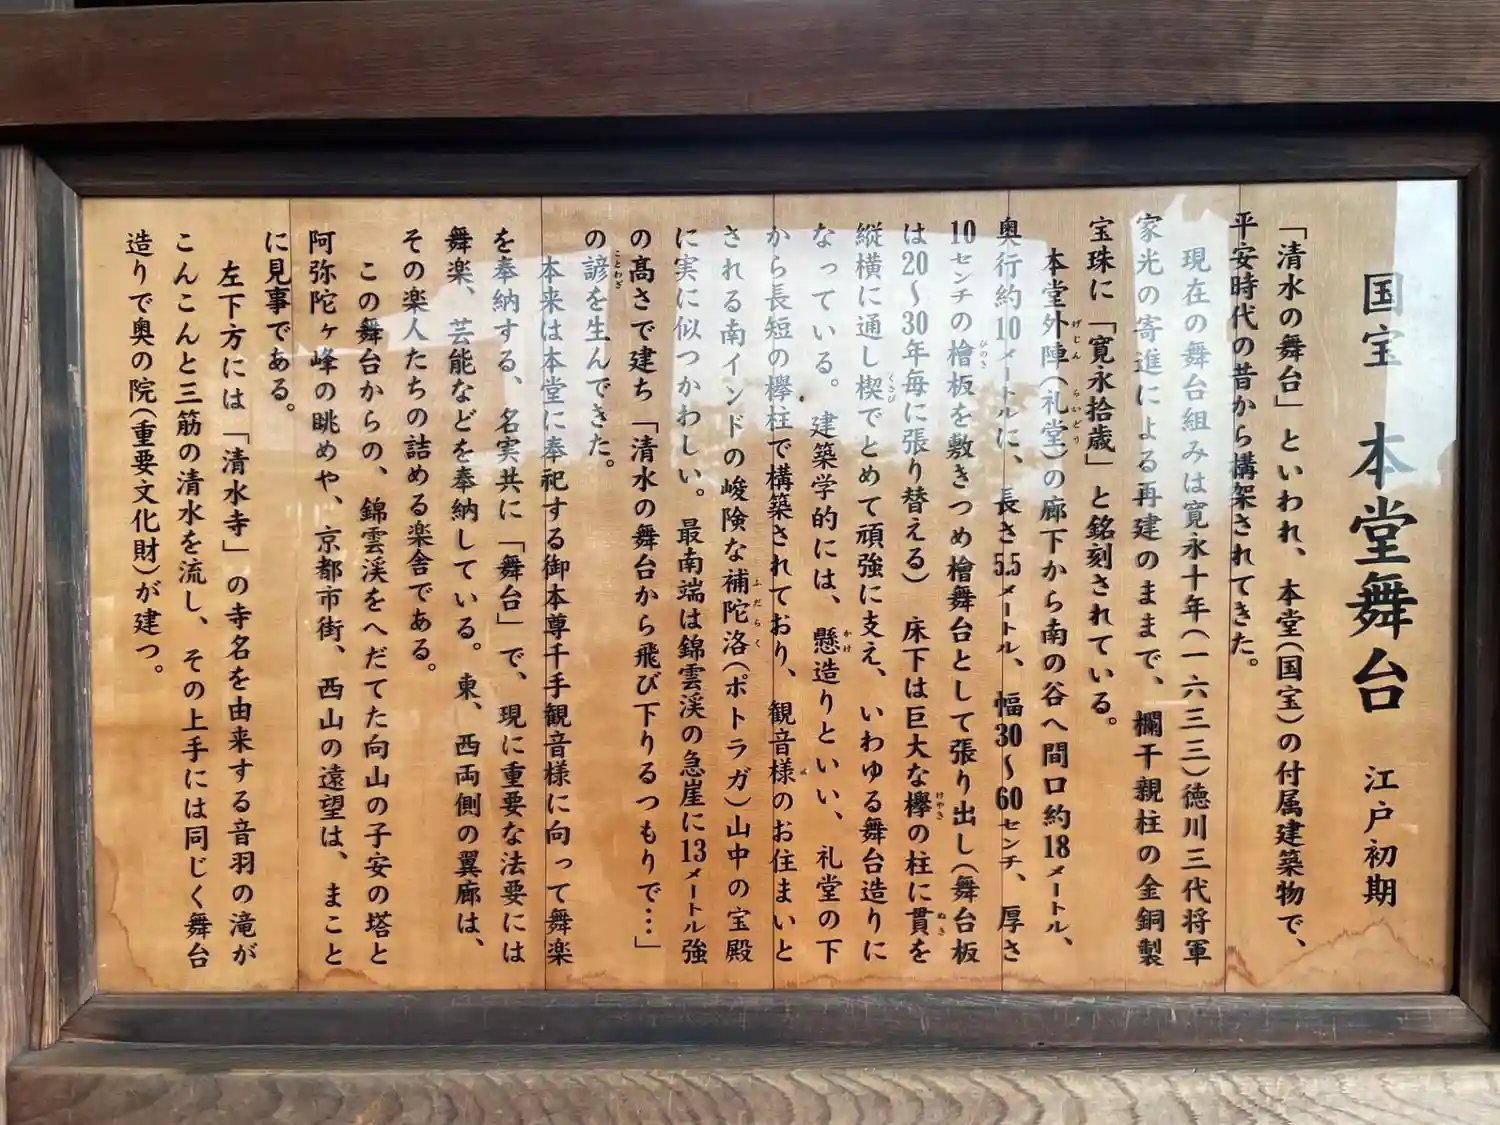 国宝　本堂舞台　江戸初期
「清水の舞台」といわれ、本堂(国宝)の付属建築物で、
平安時代の昔から構架されてきた。
現在の舞台組みは寛永十年(一六三三)徳川三代将軍
家光の寄進による再建のままで、欄干親柱の金銅製
宝珠に「寛永拾歳」と銘刻されている。
本堂外陣(礼堂)の廊下から南の谷へ間口約18メートル、
奥行約10メートルに、長さ5.5メートル、幅30〜60センチ、厚さ
10センチの檜板を敷きつめ檜舞台として張り出し(舞台板
は20〜30年毎に張り替える)　床下は巨大な欅の柱に貫を
縦横に通し楔でとめて頑強に支え、いわゆる舞台造りに
なっている。建築学的には、懸造りといい、礼堂の下
から長短の欅柱で構築されており、観音様のお住まいと
される南インドの峻険な補陀洛(ポトラガ)山中の宝殿
に実に似つかわしい。最南端は錦雲渓の急崖に13メートル強
の高さで建ち「清水の舞台から飛び下りるつもりで……」
の諺を生んできた。
本来は本堂に奉祀する御本尊千手観音様に向って舞楽
を奉納する、名実共に「舞台」で、現に重要な法要には
舞楽、芸能などを奉納している。東、西両側の翼廊は、
その楽人たちの詰める楽舎である。
この舞台からの、錦雲渓をへだてた向山の子安の塔と
阿弥陀ヶ峰の眺めや、京都市街、西山の遠望は、まこと
に見事である。
左下方には「清水寺」の寺名を由来する音羽の滝が
こんこんと三筋の清水を流し、その上手には同じく舞台
造りで奥の院(重要文化財)が建つ。